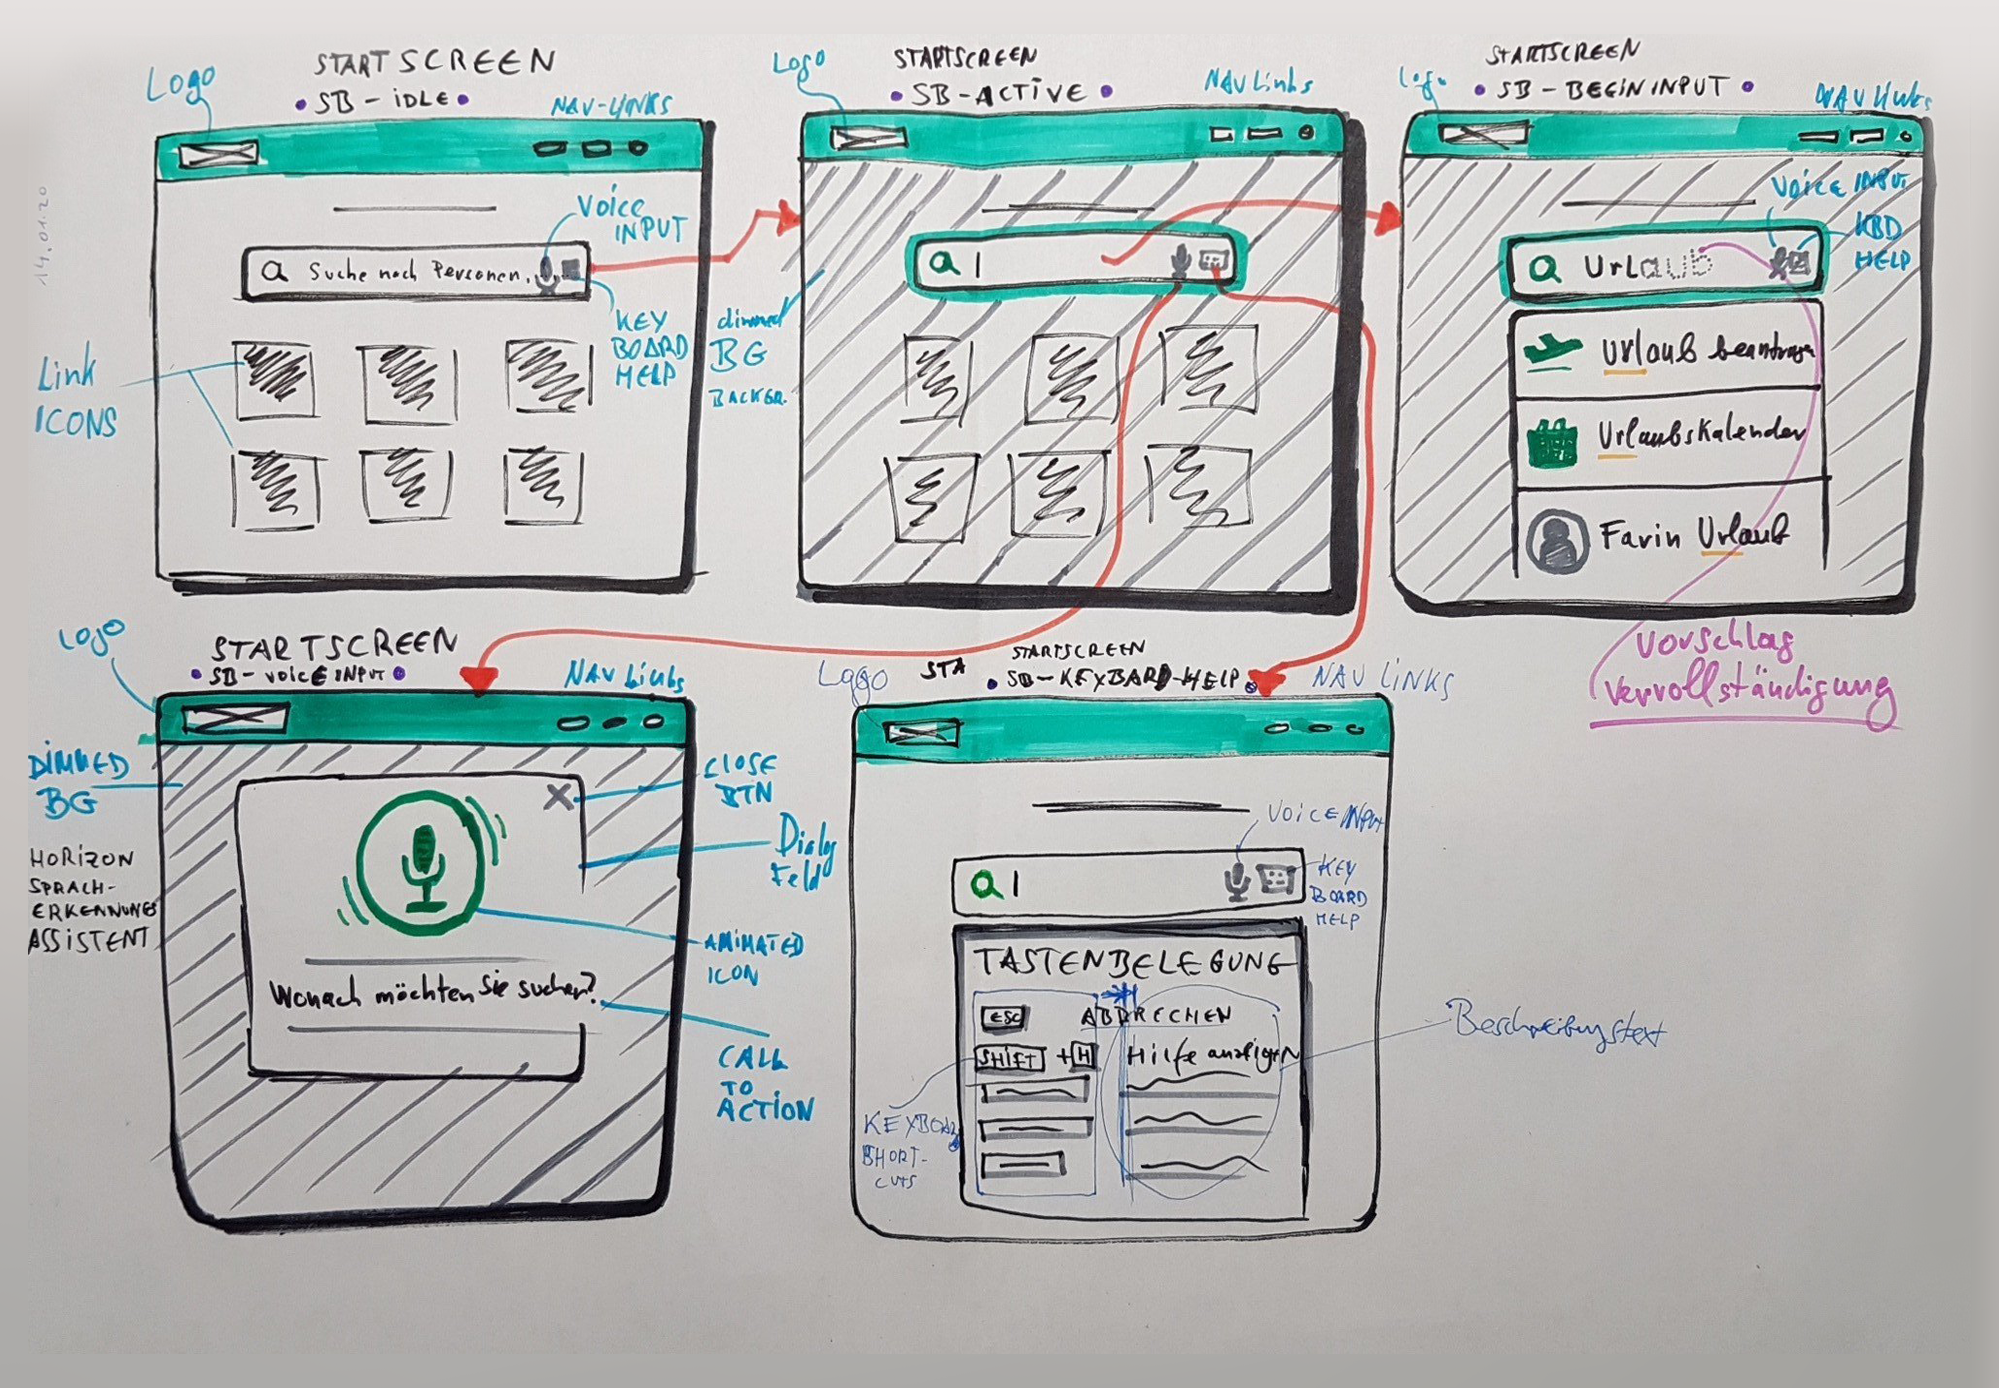 14.01.20
Logo
STARTSCREEN
• SB - IDLE •
NAV-LINKS
Voice
INPUT
Suche nach Personen.
KEY
BOARD
HELP
Link
ICONS
Logo
STARTSCREEN
• SB - ACTIVE •
NAV Links
dimmed
BG
BACKGR.
Logo
STARTSCREEN
• SB - BEGIN INPUT •
NAV Links
Voice INPUT
KBD
HELP
Urlaub
Urlaub beantragen
Urlaubskalender
Farin Urlaub
Vorschlag
Vervollständigung
Logo
STARTSCREEN
• SB - VOICE INPUT •
NAV Links
DIMMED
BG
HORIZON
SPRACH-
ERKENNUNGS
ASSISTENT
X
CLOSE
BTN
Dialog
Feld
ANIMATED
ICON
Wonach möchten Sie suchen?
CALL
TO
ACTION
Logo
STA
STARTSCREEN
• SB - KEYBARD-HELP •
NAV LINKS
VOICE INPUT
KEY
BOARD
HELP
TASTENBELEGUNG
ESC
ABBRECHEN
SHIFT + H
Hilfe anzeigen
Beschreibungstext
KEYBOARD
SHORT-
CUTS